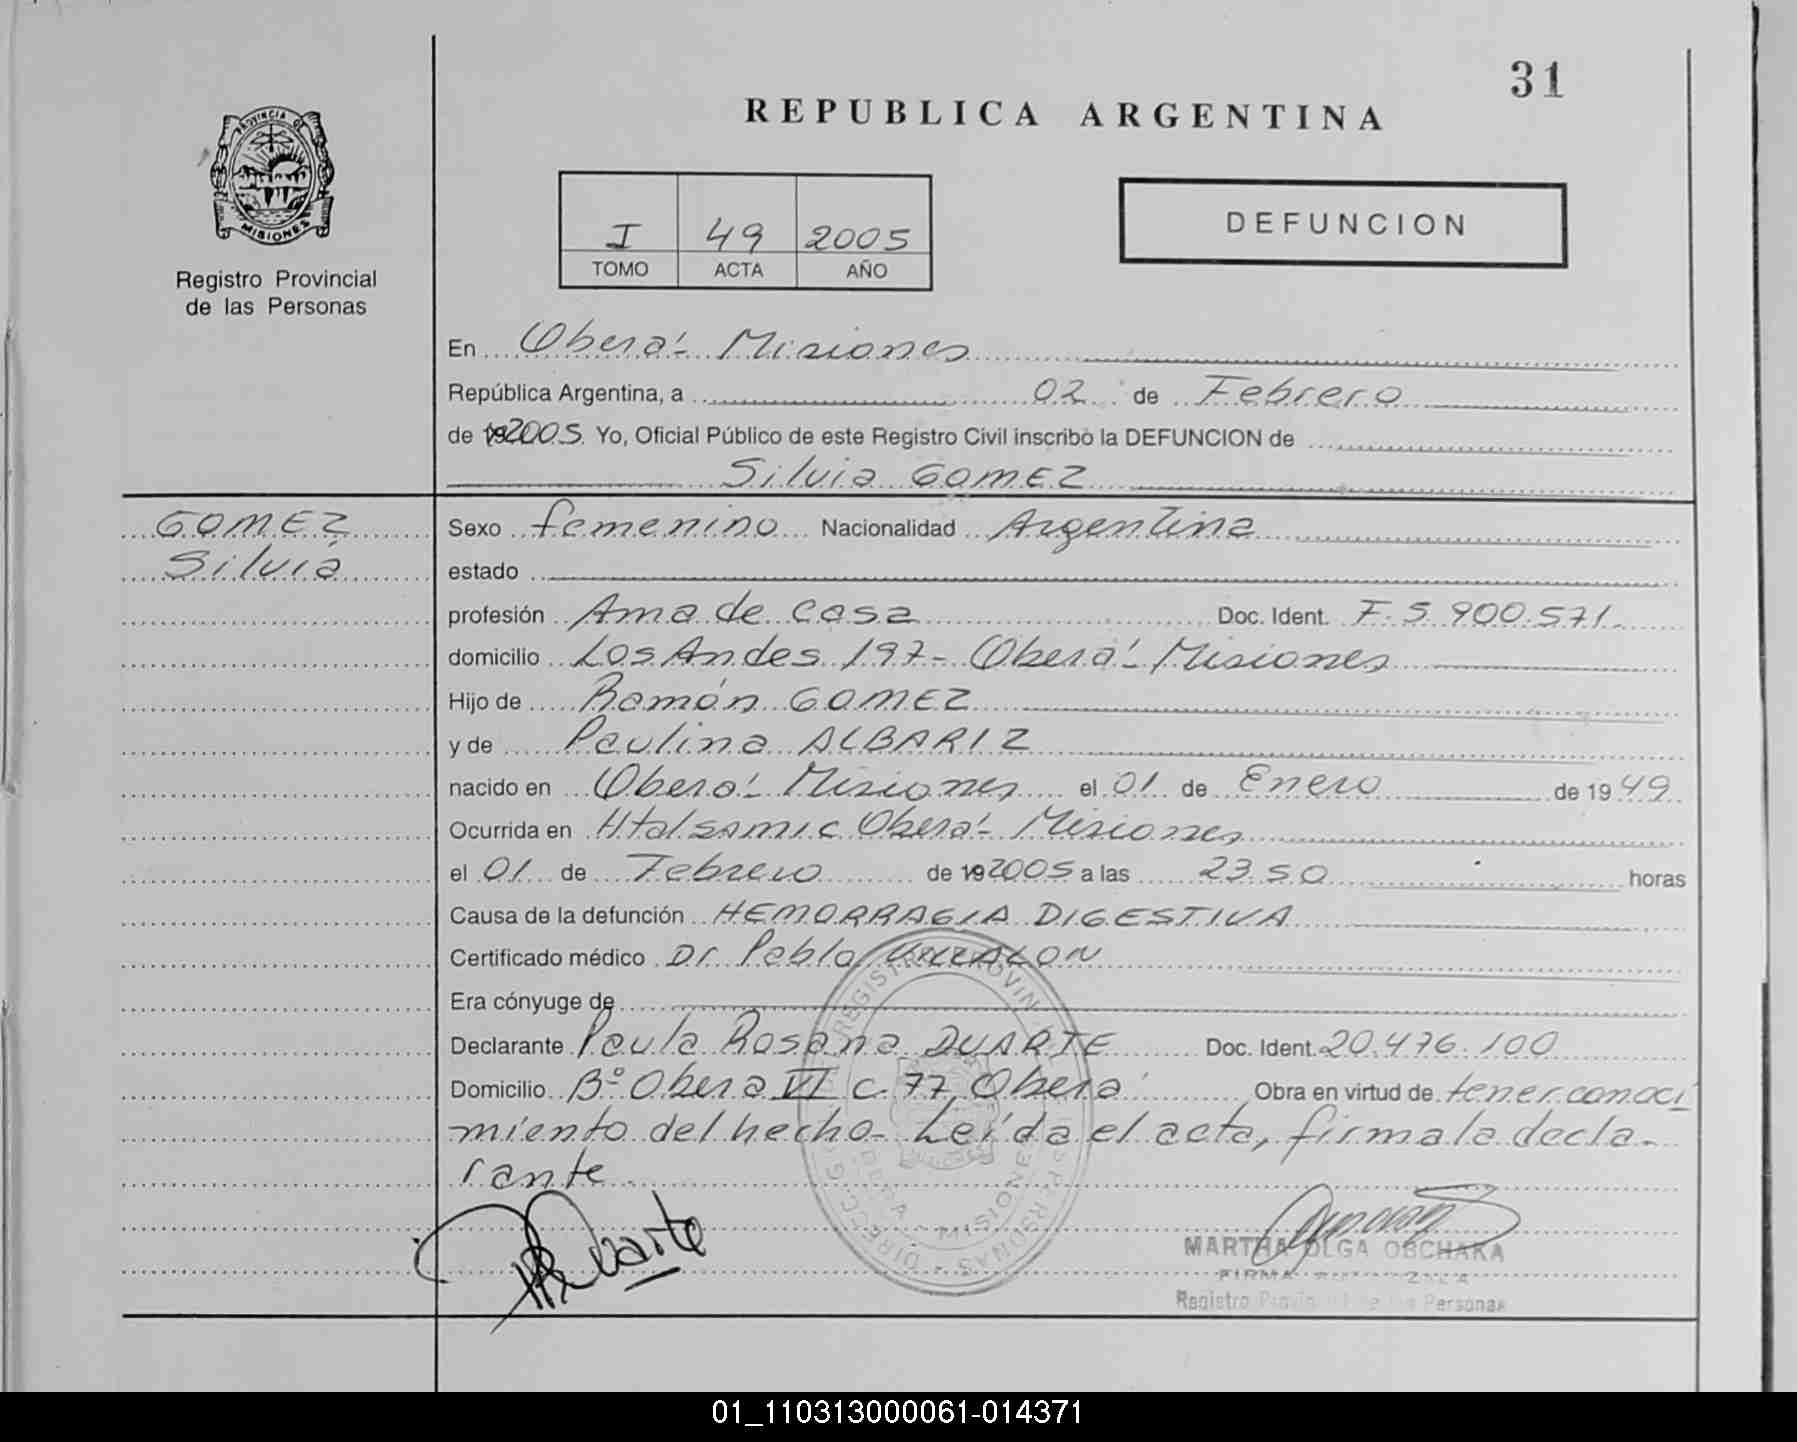 31
REPUBLICA ARGENTINA
PROVINCIA DE
MISIONES
Registro Provincial
de las Personas
I 49 2005
TOMO ACTA AÑO
DEFUNCION
En Oberá - Misiones
República Argentina, a 02 de Febrero
de 192005. Yo, Oficial Público de este Registro Civil inscribo la DEFUNCION de
Silvia GOMEZ
GOMEZ
Silvia
Sexo femenino Nacionalidad Argentina
estado
profesión Ama de casa Doc. Ident. F. 5.900.571.
domicilio Los Andes 197 - Oberá - Misiones
Hijo de Ramón GOMEZ
y de Paulina ALBARIZ
nacido en Oberá - Misiones el 01 de Enero de 1949
Ocurrida en Htal samic Oberá - Misiones
el 01 de Febrero de 192005 a las 23.50 horas
Causa de la defunción HEMORRAGIA DIGESTIVA
Certificado médico Dr Pablo
Era cónyuge de
Declarante Paula Rosana DUARTE Doc. Ident. 20.476.100
Domicilio Bº Obera VI c. 77 Oberá Obra en virtud de tener conoci
miento del hecho - Leída el acta, firma la decla-
rante
Duarte
MARTHA OLGA OBCHAKA
FIRMA
Registro Personas
MISIONES
01_110313000061-014371